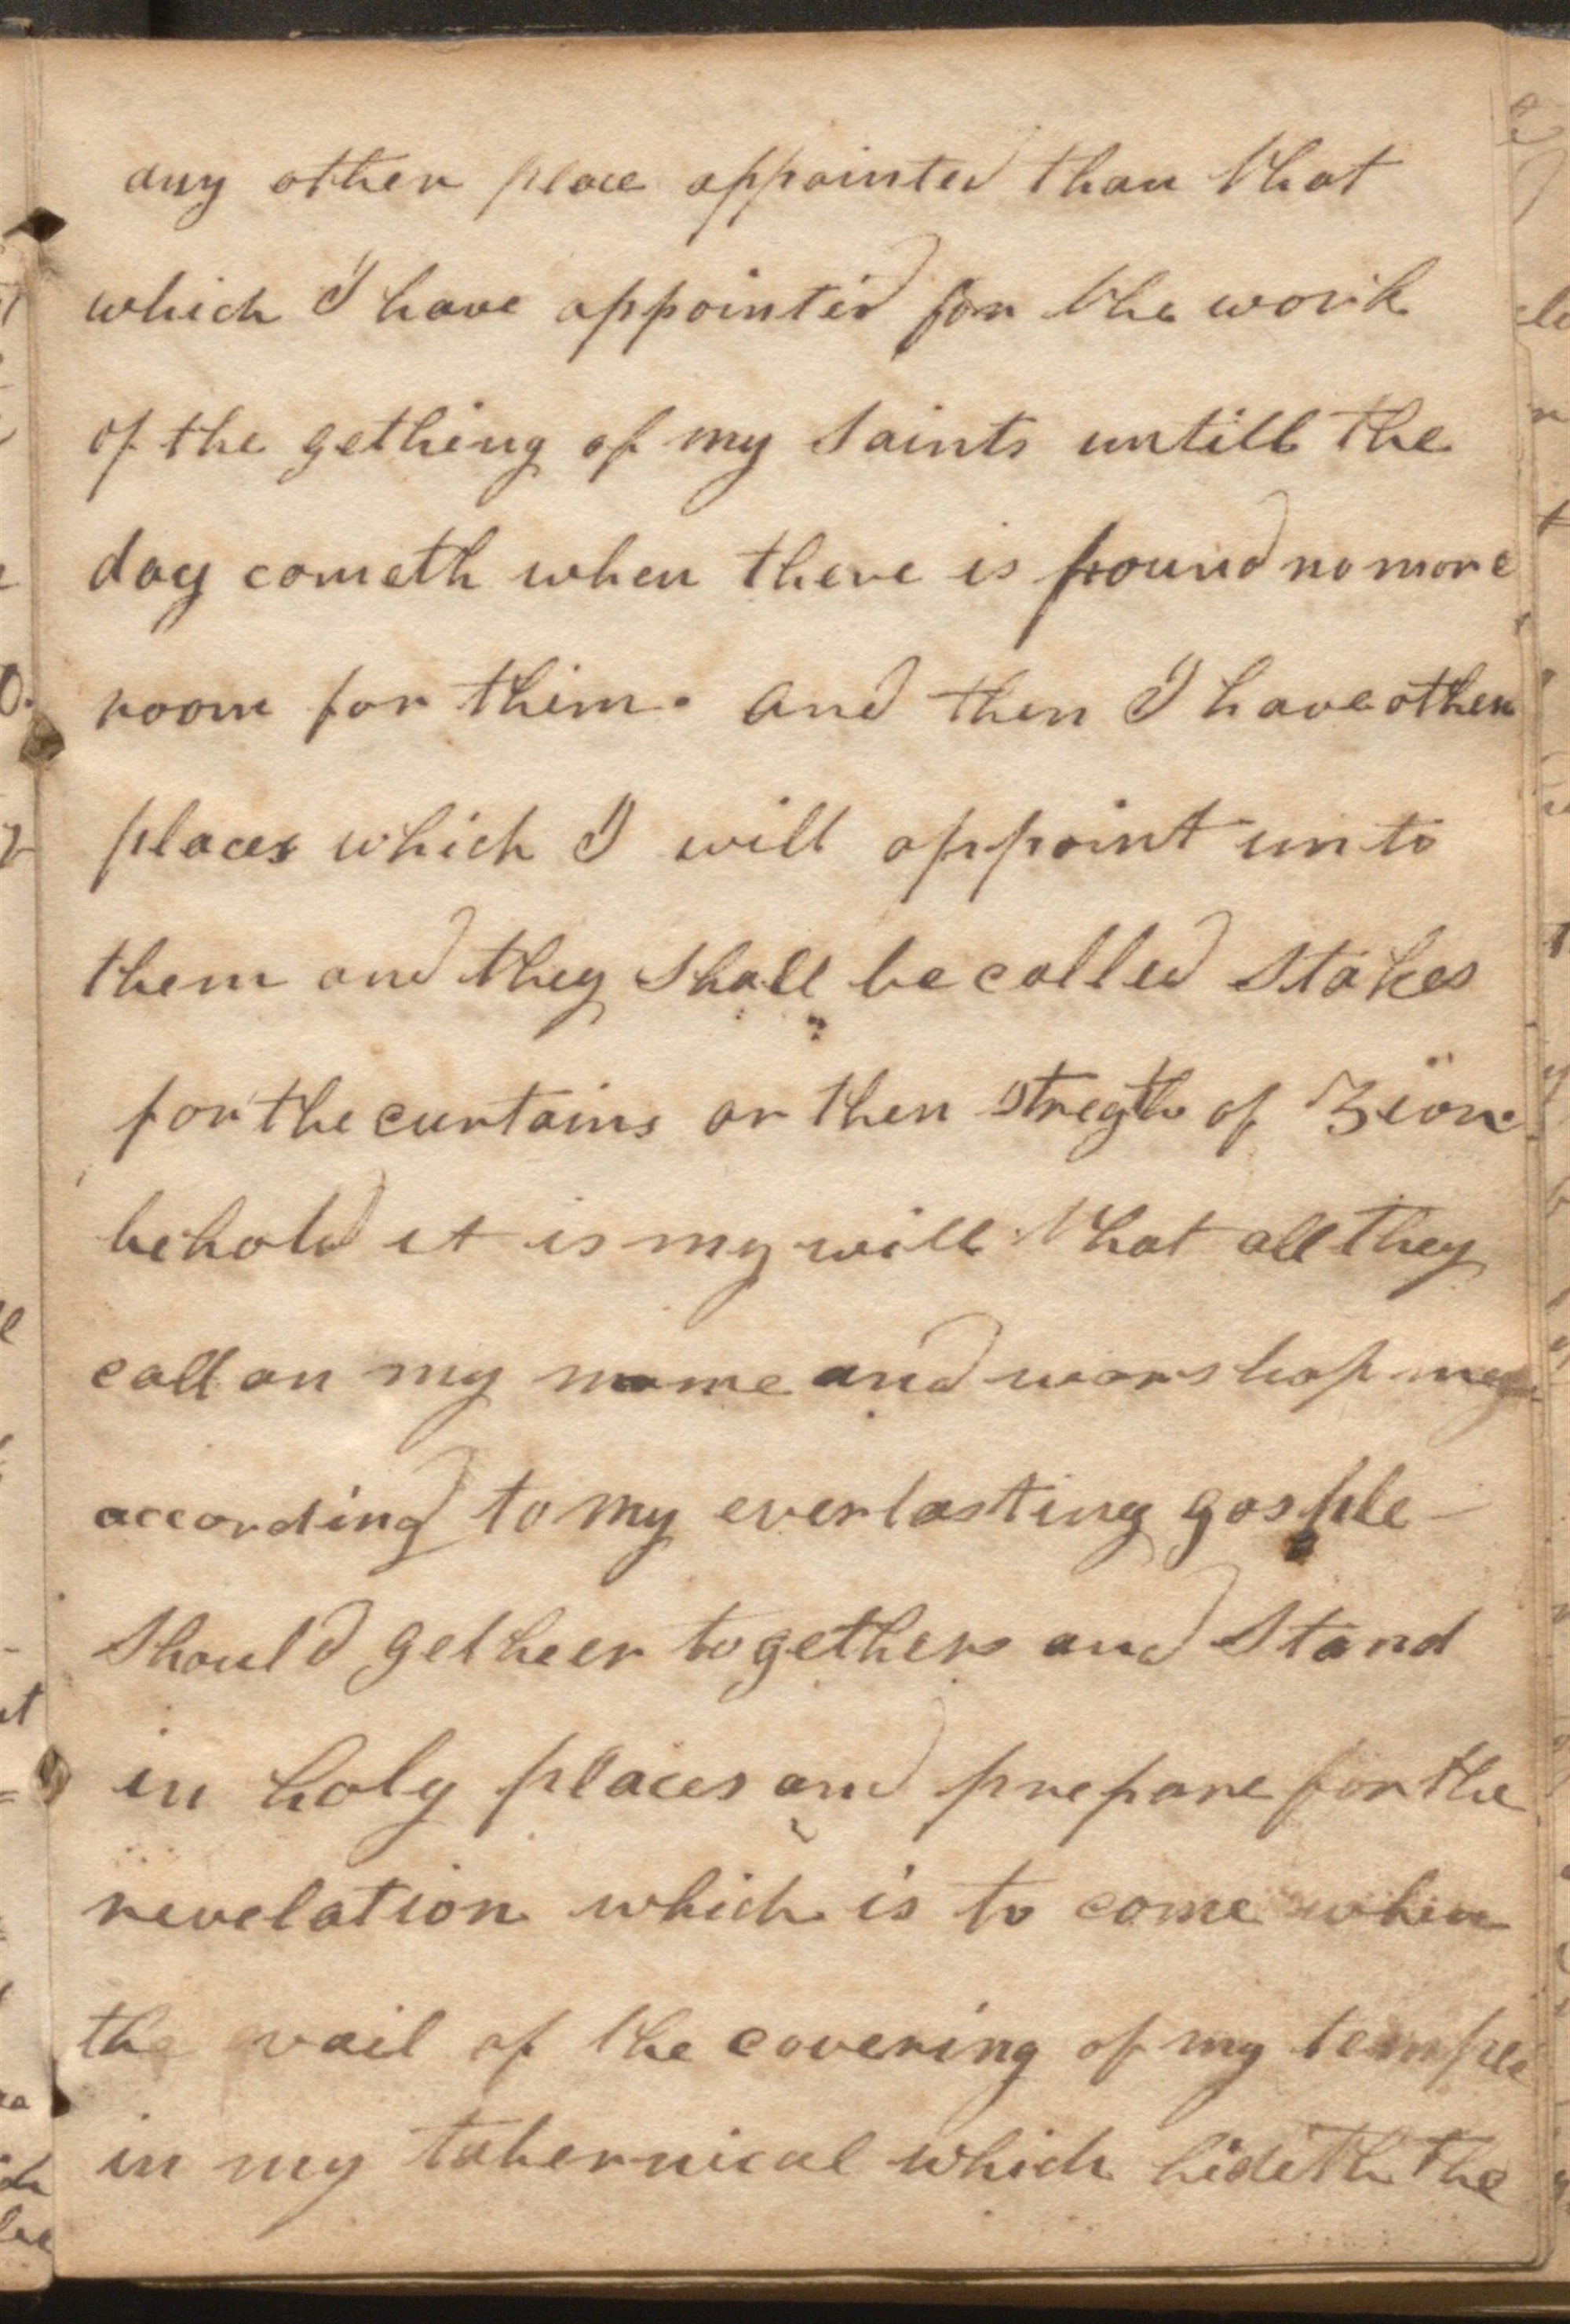 any other place appointed than that
which I have appointed for the work
of the gething of my saints untill the
day cometh when there is found no more
room for them. and then I have other
places which I will appoint unto
them and they shall be called stakes
for the curtains or then stregth of Zion
behold it is my will that all they
call on my name and worshop me
according to my everlasting gosple
should getheer together and stand
in holy places and prepare for the
revelation which is to come when
the vail of the covering of my temple
in my tabernical which hideth the